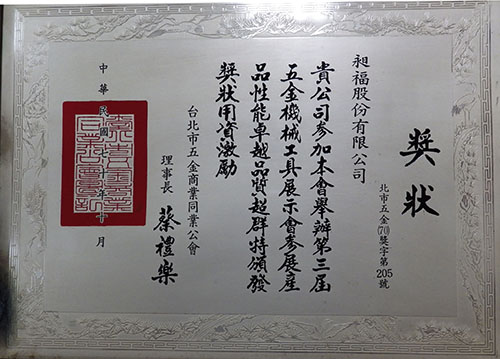 獎狀
北市五金(70)獎字第205號
昶福股份有限公司
貴公司參加本會舉辦第三屆
五金機械工具展示會參展產
品性能卓越品質超群特頒發
獎狀用資激勵
台北市五金商業同業公會
理事長 蔡禮樂
中華民國七十年十月